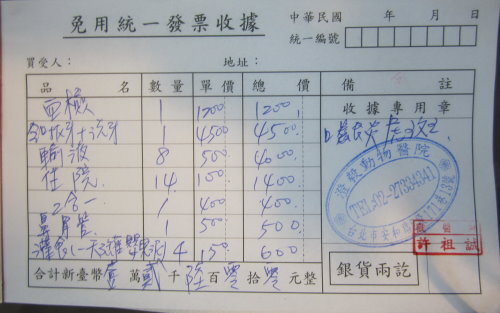 免用統一發票收據
中華民國 年 月 日
統一編號
買受人： 地址：
品名 數量 單價 總價 備註
血檢 1 1200 1200
收據專用章
拔牙+洗牙 1 4500 4500
輸液 8 500 4000
住院 14 100 1400
二合一 1 400 400
鼻胃管 1 500 500
4 150 600
動物醫院
TEL:02-27
台北市安和路
許祖誠
合計新臺幣 壹 萬 貳 千 陸 百 零 拾 零 元整
銀貨兩訖